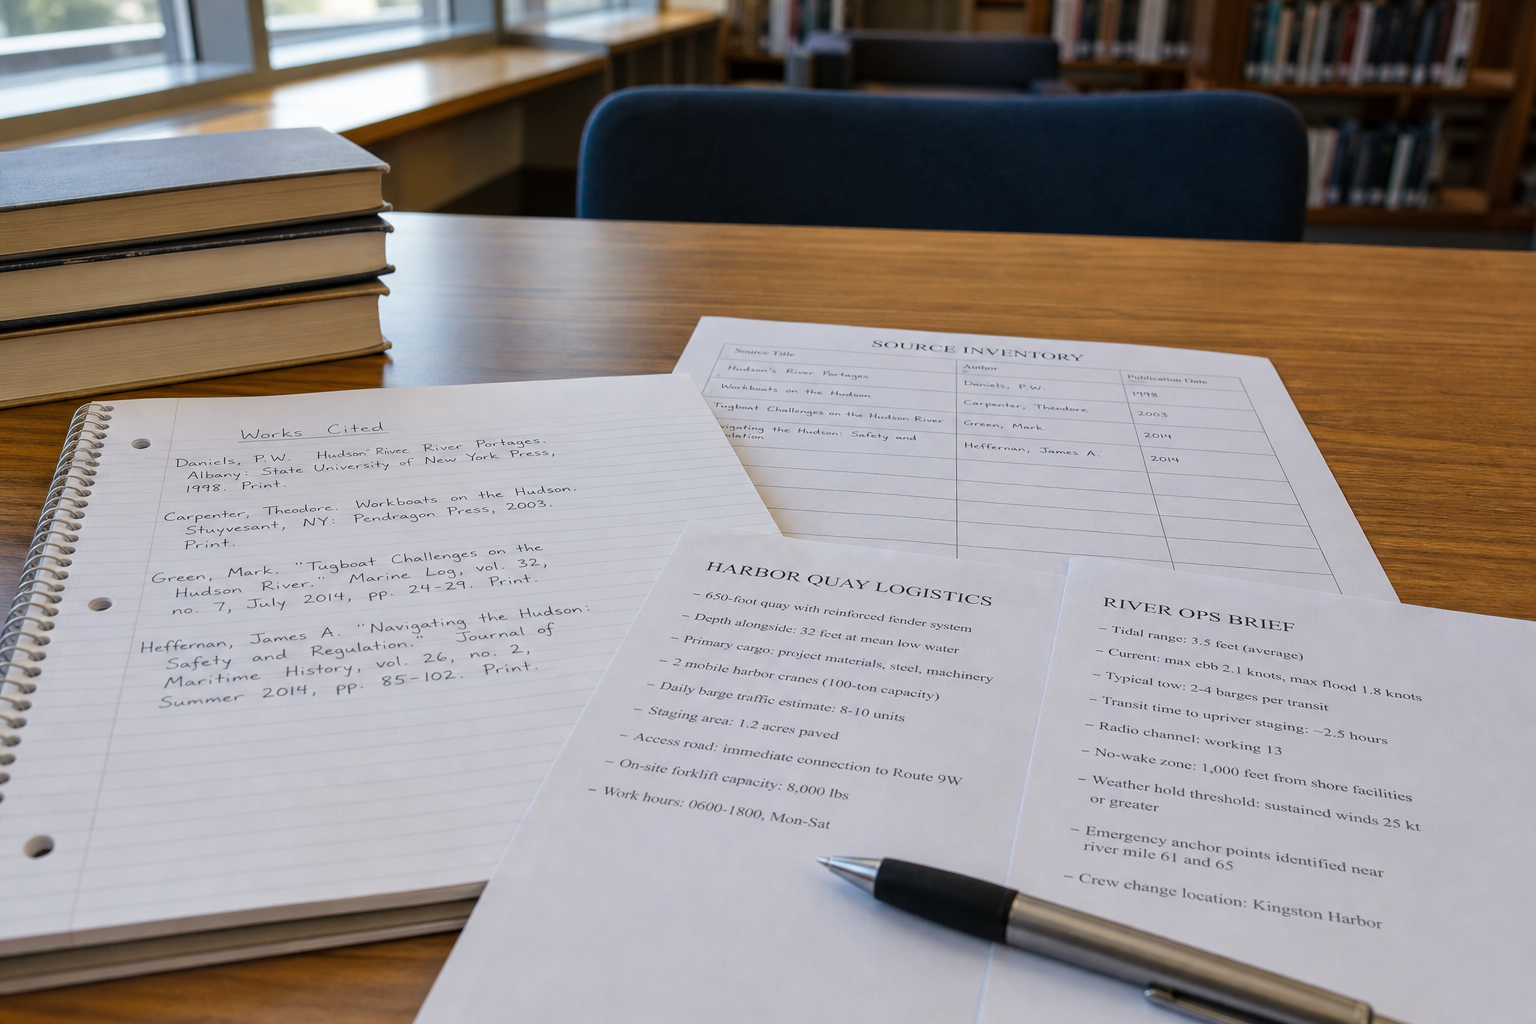 Works Cited
Daniels, P.W. Hudson' River River Portages.
Albany: State University of New York Press,
1998. Print.
Carpenter, Theodore. Workboats on the Hudson.
Stuyvesant, NY: Pendragon Press, 2003.
Print.
Green, Mark. "Tugboat Challenges on the
Hudson River." Marine Log, vol. 32,
no. 7, July 2014, pp. 24-29. Print.
Heffernan, James A. "Navigating the Hudson:
Safety and Regulation." Journal of
Maritime History, vol. 26, no. 2,
Summer 2014, pp. 85-102. Print.
SOURCE INVENTORY
Source Title Author Publication Date
Hudson's River Portages Daniels, P.W. 1998
Workboats on the Hudson Carpenter, Theodore 2003
Tugboat Challenges on the Hudson River Green, Mark 2014
the Hudson: Safety and Heffernan, James A. 2014
HARBOR QUAY LOGISTICS
– 650-foot quay with reinforced fender system
– Depth alongside: 32 feet at mean low water
– Primary cargo: project materials, steel, machinery
– 2 mobile harbor cranes (100-ton capacity)
– Daily barge traffic estimate: 8-10 units
– Staging area: 1.2 acres paved
– Access road: immediate connection to Route 9W
– On-site forklift capacity: 8,000 lbs
– Work hours: 0600-1800, Mon-Sat
RIVER OPS BRIEF
– Tidal range: 3.5 feet (average)
– Current: max ebb 2.1 knots, max flood 1.8 knots
– Typical tow: 2-4 barges per transit
– Transit time to upriver staging: ~2.5 hours
– Radio channel: working 13
– No-wake zone: 1,000 feet from shore facilities
– Weather hold threshold: sustained winds 25 kt
or greater
– Emergency anchor points identified near
river mile 61 and 65
– Crew change location: Kingston Harbor